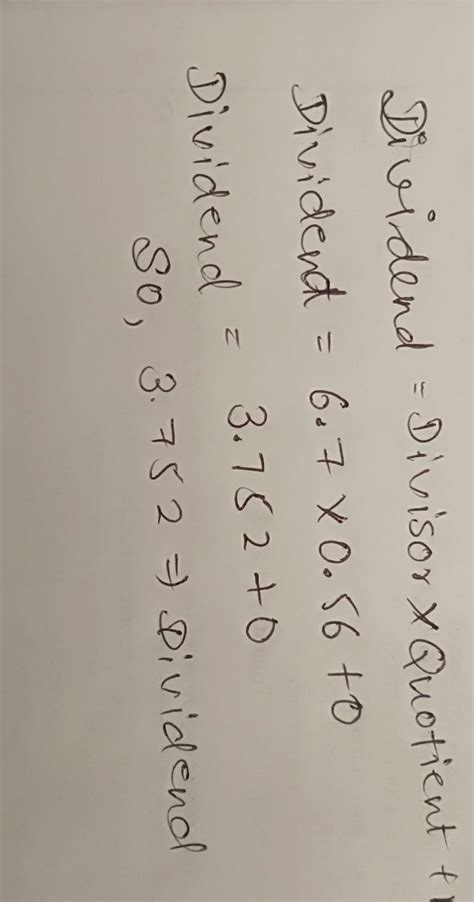 Dividend = Divisor × Quotient +
Dividend = 6.7 × 0.56 + 0
Dividend = 3.752 + 0
So, 3.752 ⇒ Dividend